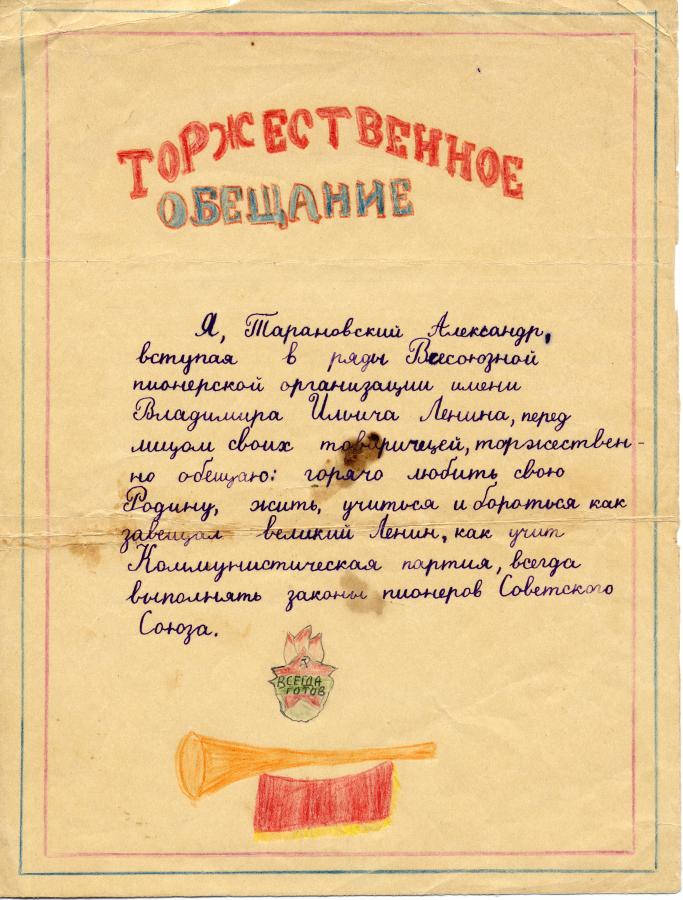 ТОРЖЕСТВЕННОЕ
ОБЕЩАНИЕ
Я, Тарановский Александр,
вступая в ряды Всесоюзной
пионерской организации имени
Владимира Ильича Ленина, перед
лицом своих товарищей, торжествен-
но обещаю: горячо любить свою
Родину, жить, учиться и бороться как
завещал великий Ленин, как учит
Коммунистическая партия, всегда
выполнять законы пионеров Советского
Союза.
ВСЕГДА
ГОТОВ